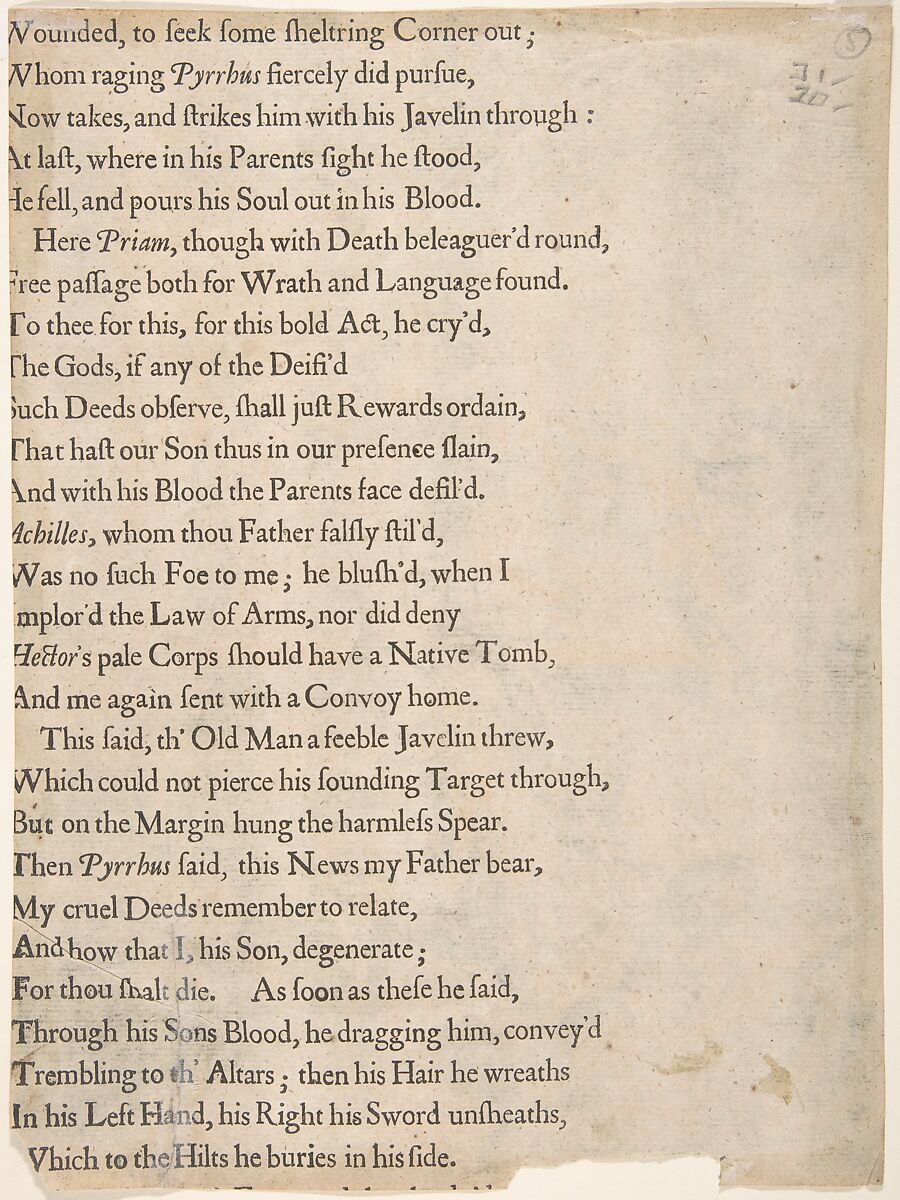 Wounded, to ſeek ſome ſheltring Corner out;
Whom raging Pyrrhus fiercely did purſue,
Now takes, and ſtrikes him with his Javelin through:
At laſt, where in his Parents ſight he ſtood,
He fell, and pours his Soul out in his Blood.
Here Priam, though with Death beleaguer'd round,
Free paſſage both for Wrath and Language found.
To thee for this, for this bold Act, he cry'd,
The Gods, if any of the Deifi'd
Such Deeds obſerve, ſhall juſt Rewards ordain,
That haſt our Son thus in our preſence ſlain,
And with his Blood the Parents face defil'd.
Achilles, whom thou Father falſly ſtil'd,
Was no ſuch Foe to me; he bluſh'd, when I
mplor'd the Law of Arms, nor did deny
Hector's pale Corps ſhould have a Native Tomb,
And me again ſent with a Convoy home.
This ſaid, th' Old Man a feeble Javelin threw,
Which could not pierce his ſounding Target through,
But on the Margin hung the harmleſs Spear.
Then Pyrrhus ſaid, this News my Father bear,
My cruel Deeds remember to relate,
And how that I, his Son, degenerate;
For thou ſhalt die. As ſoon as theſe he ſaid,
Through his Sons Blood, he dragging him, convey'd
Trembling to th' Altars; then his Hair he wreaths
In his Left Hand, his Right his Sword unſheaths,
Which to the Hilts he buries in his ſide.
5